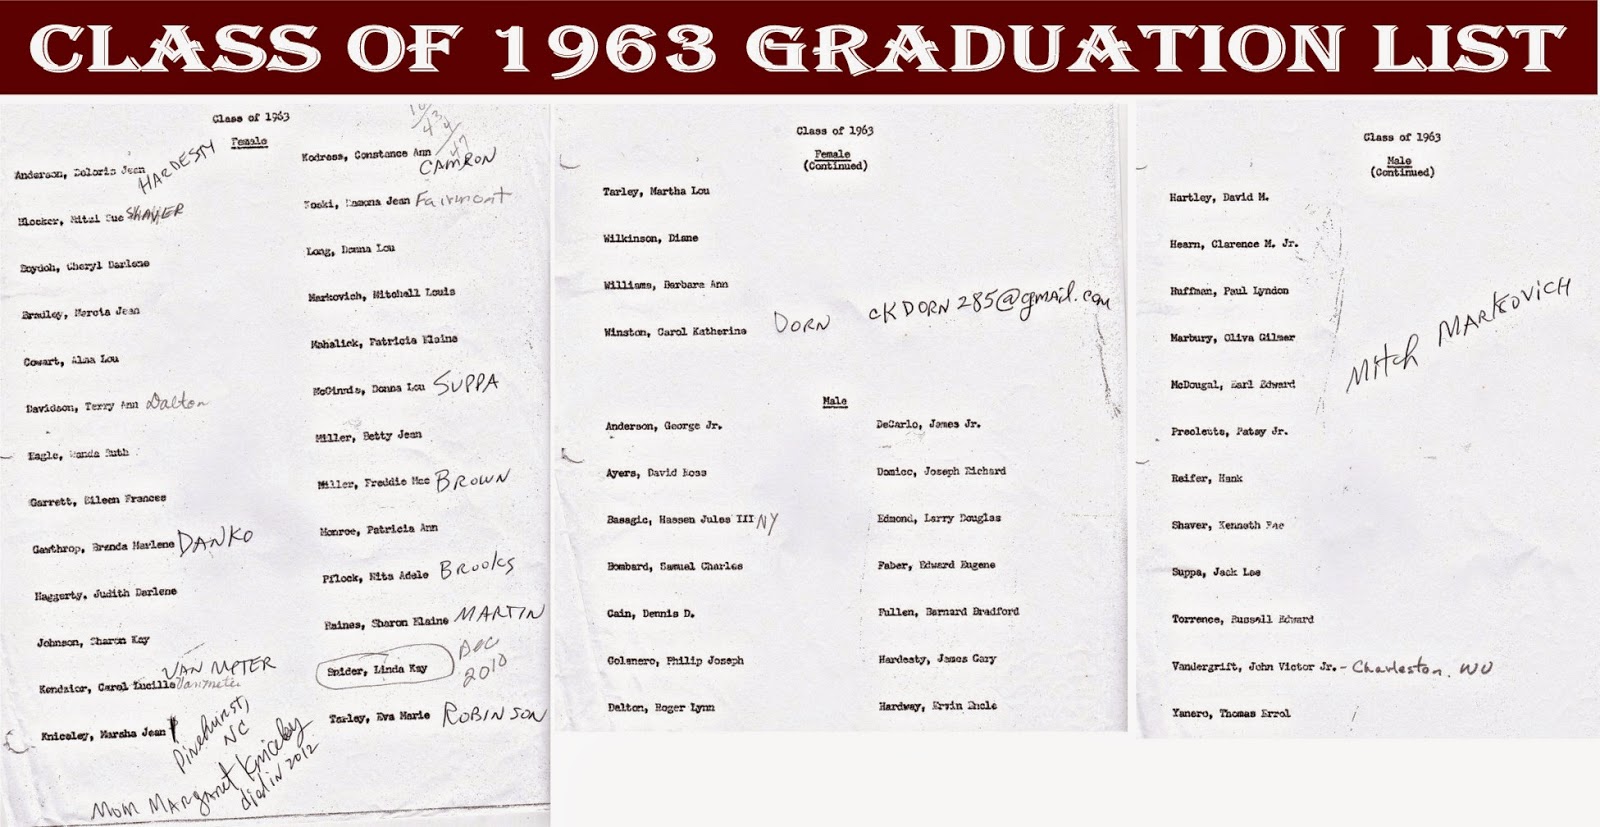 CLASS OF 1963 GRADUATION LIST
Class of 1963
Female
Anderson, Doloris Jean HARDESTY
Blocker, Mitzi Sue SHAVER
Boydoh, Cheryl Darlene
Bradley, Marcia Jean
Cowart, Alma Lou
Davidson, Terry Ann Dalton
Eagle, Wanda Ruth
Garrett, Eileen Frances
Gawthrop, Brenda Marlene DANKO
Haggerty, Judith Darlene
Johnson, Sharon Kay
Kendzior, Carol Lucille VAN METER
Vanmeter
Kniceley, Marsha Jean
Pinehurst,
NC
Mom Margaret Kniceley
died in 2012
Kodress, Constance Ann
CAMRON
Koski, Ramona Jean Fairmont
Long, Donna Lou
Markovich, Mitchell Louis
Mahalick, Patricia Elaine
McGinnis, Donna Lou SUPPA
Miller, Betty Jean
Miller, Freddie Mae BROWN
Monroe, Patricia Ann
Pflock, Rita Adele Brooks
Raines, Sharon Elaine MARTIN
Snider, Linda Kay DEC
2010
Tarley, Eva Marie ROBINSON
Class of 1963
Female
(Continued)
Tarley, Martha Lou
Wilkinson, Diane
Williams, Barbara Ann
Winston, Carol Katherine DORN CKDORN285@gmail.com
Male
Anderson, George Jr.
Ayers, David Ross
Basagic, Hassen Jules III NY
Bombard, Samuel Charles
Cain, Dennis D.
Colanero, Philip Joseph
Dalton, Roger Lynn
DeCarlo, James Jr.
Domico, Joseph Richard
Edmond, Larry Douglas
Faber, Edward Eugene
Fullen, Barnard Bradford
Hardesty, James Gary
Hardway, Ervin Encle
Class of 1963
Male
(Continued)
Hartley, David M.
Hearn, Clarence M. Jr.
Huffman, Paul Lyndon
Marbury, Oliva Gilmer
McDougal, Earl Edward
Mitch MARKOVICH
Preolete, Patsy Jr.
Reifer, Hank
Shaver, Kenneth Rae
Suppa, Jack Lee
Torrence, Russell Edward
Vandergrift, John Victor Jr. - Charleston, WV
Yanero, Thomas Errol